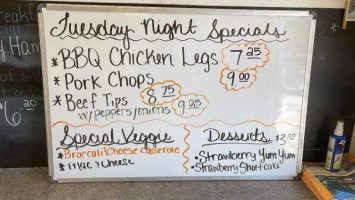 Tuesday Night Specials
* BBQ Chicken Legs 7.25
* Pork Chops 9.00
* Beef Tips 8.75
w/peppers/onions 9.25
Special Veggie
* Broccoli/Cheese Casserole
* Mac & Cheese
Desserts
• Strawberry Yum Yum
• Strawberry Shortcake